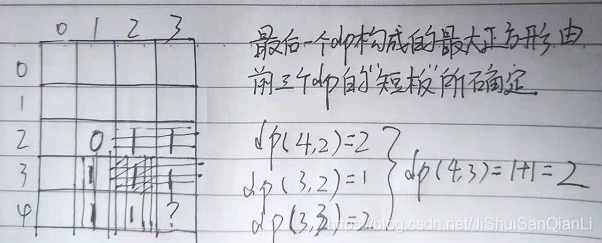 0 1 2 3
0
1
2 0 1 1
3 1 1 1
4 1 1 ?
最后一个dp构成的最大正方形由
前三个dp的"短板"所确定
dp(4,2)=2
dp(3,2)=1
dp(3,3)=2
dp(4,3)=1+1=2
https://blog.csdn.net/JIShuiSanQianLi